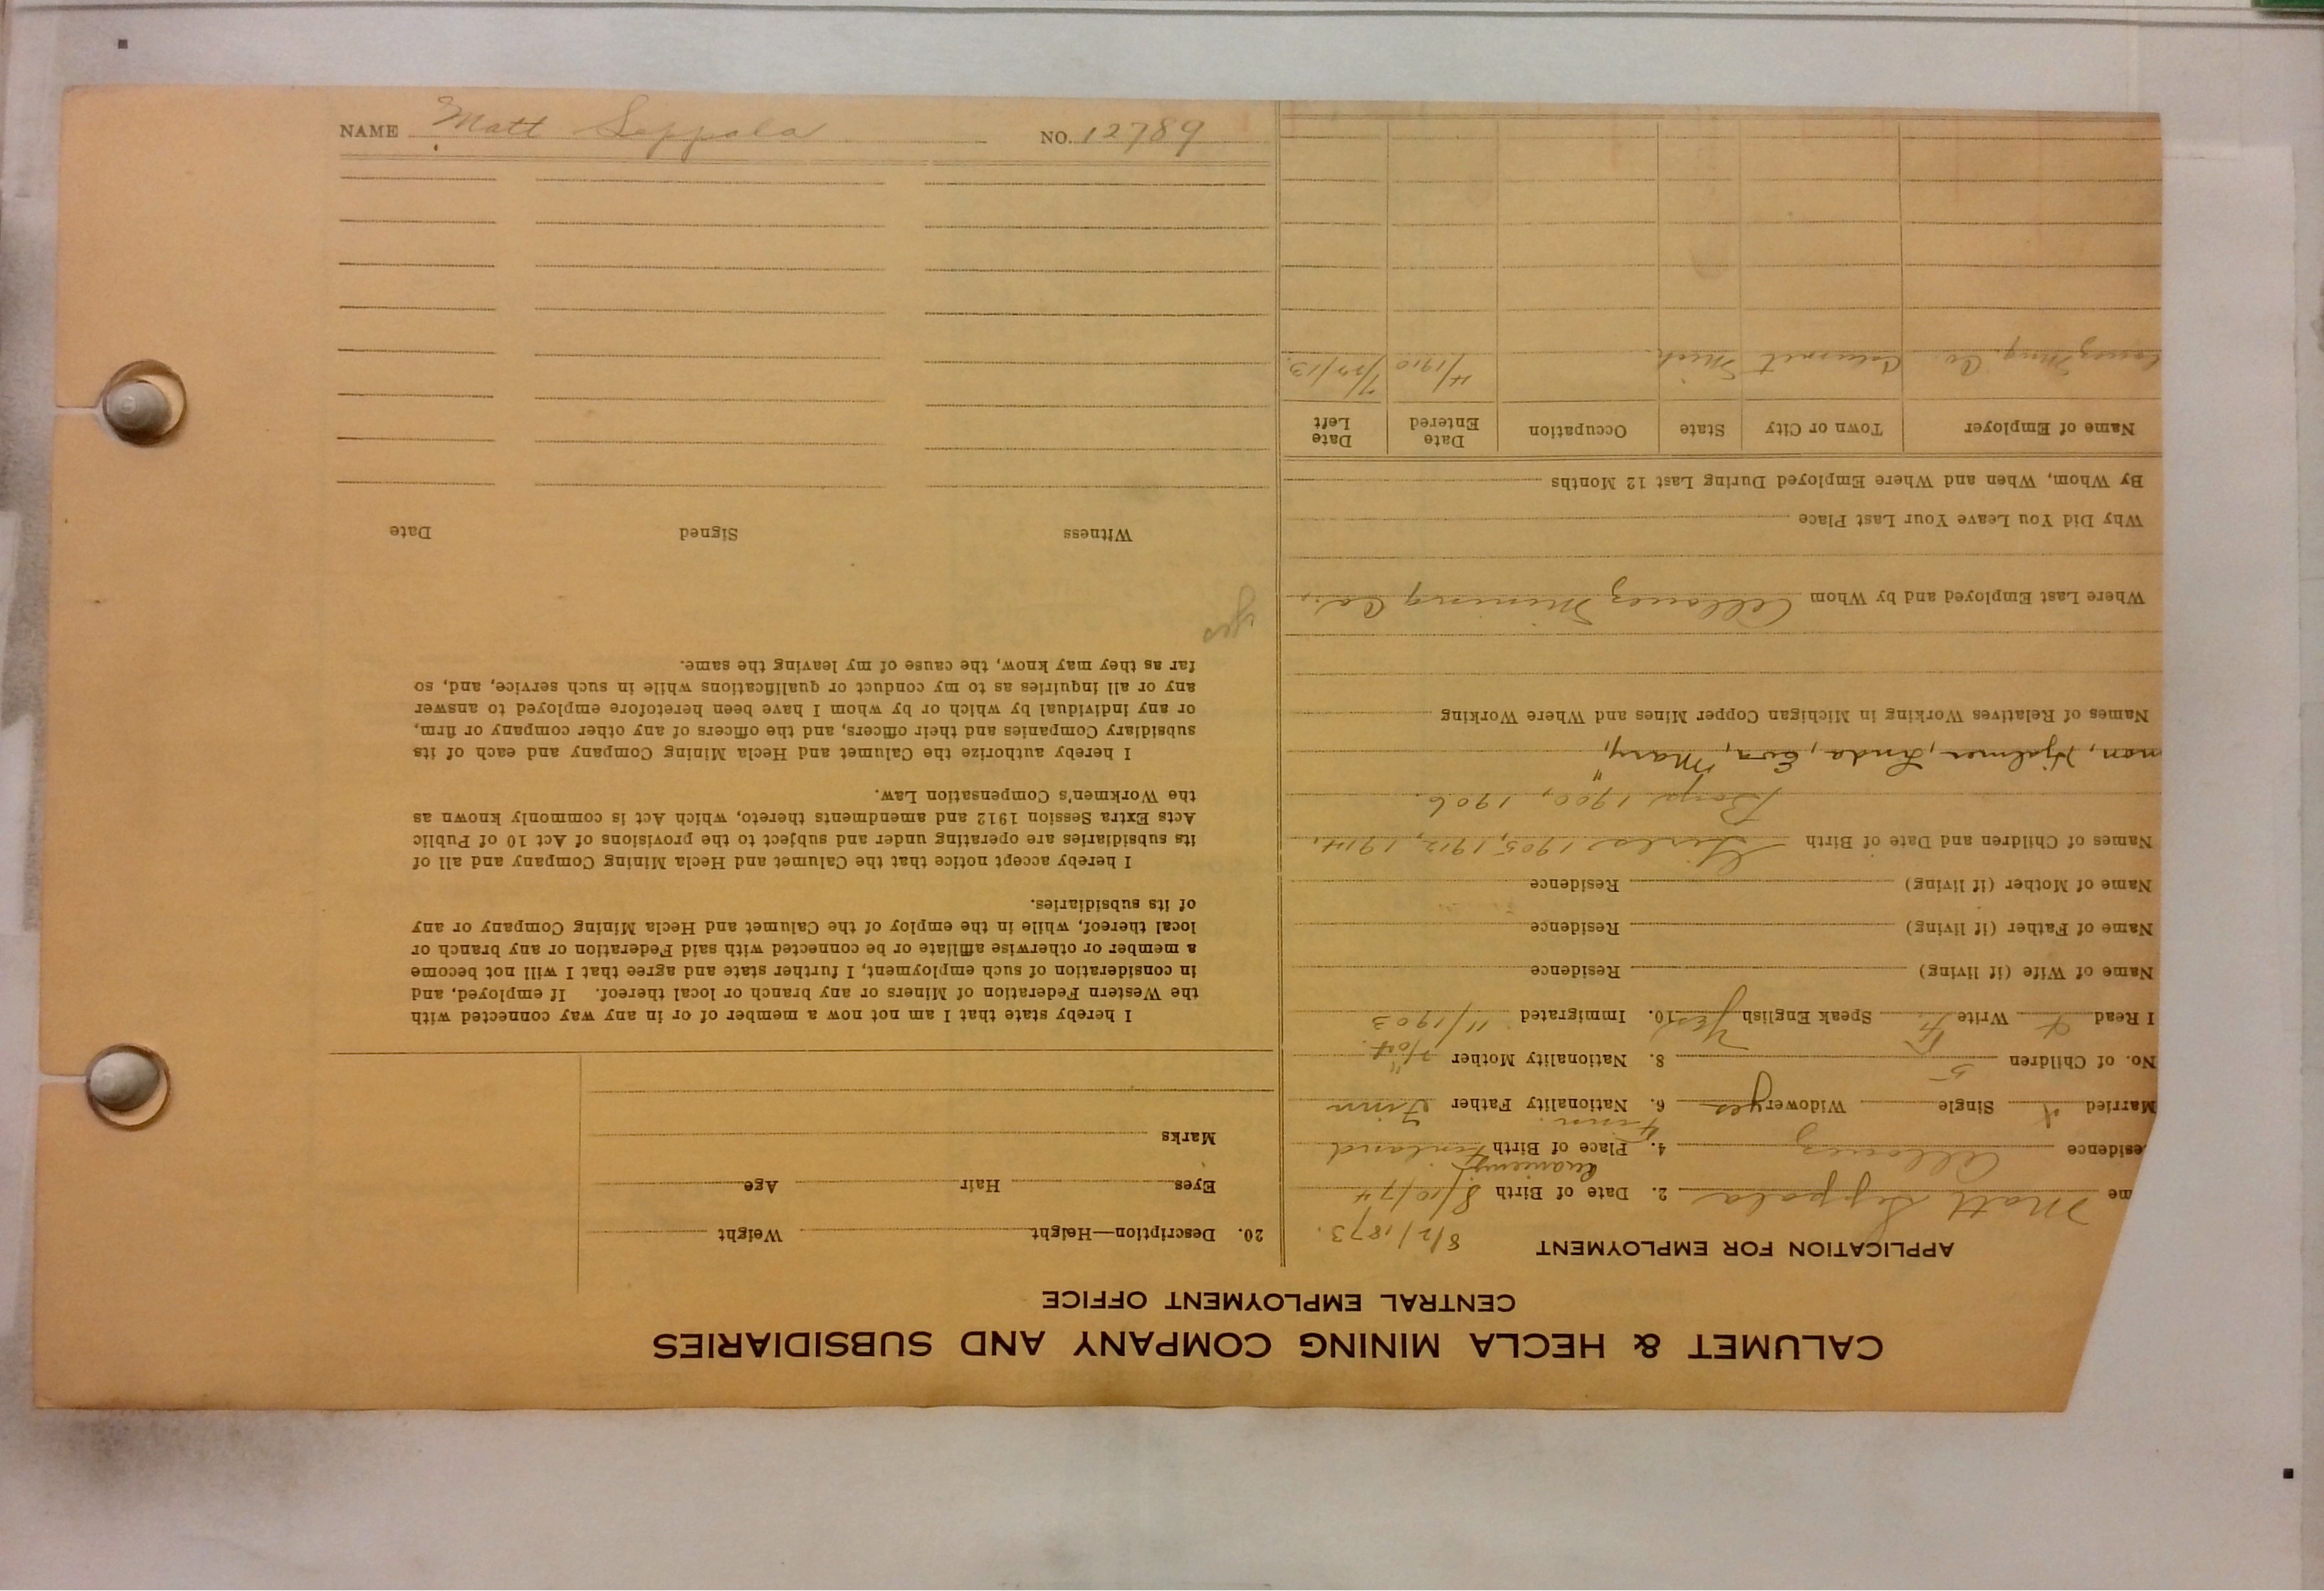 NAME Matt Seppala NO. 12789
CALUMET & HECLA MINING COMPANY AND SUBSIDIARIES
CENTRAL EMPLOYMENT OFFICE
APPLICATION FOR EMPLOYMENT
8/2/1873.
me Matt Seppala 2. Date of Birth 8/10/74
esidence Allouez 4. Place of Birth Finland
Finn
Married Single Widower yes 6. Nationality Father Finn
No. of Children 5 8. Nationality Mother "
I Read Write F. Speak English Yes 10. Immigrated 11/1903
Name of Wife (if living) Residence
Name of Father (if living) Residence
Name of Mother (if living) Residence
Names of Children and Date of Birth Girls 1905, 1912, 1914.
Boys 1900, 1906.
Hjalmer, Linda, Eva, Mary,
Names of Relatives Working in Michigan Copper Mines and Where Working
Where Last Employed and by Whom Allouez Mining Co.,
Why Did You Leave Your Last Place
By Whom, When and Where Employed During Last 12 Months
Name of Employer Town or City State Occupation Date Entered Date Left
louez Ming. Co. Calumet Mich. 4/1910 7/22/13.
20. Description—Height Weight
Eyes Hair Age
Marks
I hereby state that I am not now a member of or in any way connected with
the Western Federation of Miners or any branch or local thereof. If employed, and
in consideration of such employment, I further state and agree that I will not become
a member or otherwise affiliate or be connected with said Federation or any branch or
local thereof, while in the employ of the Calumet and Hecla Mining Company or any
of its subsidiaries.
I hereby accept notice that the Calumet and Hecla Mining Company and all of
its subsidiaries are operating under and subject to the provisions of Act 10 of Public
Acts Extra Session 1912 and amendments thereto, which Act is commonly known as
the Workmen's Compensation Law.
I hereby authorize the Calumet and Hecla Mining Company and each of its
subsidiary Companies and their officers, and the officers of any other company or firm,
or any individual by which or by whom I have been heretofore employed to answer
any or all inquiries as to my conduct or qualifications while in such service, and, so
far as they may know, the cause of my leaving the same.
Witness Signed Date